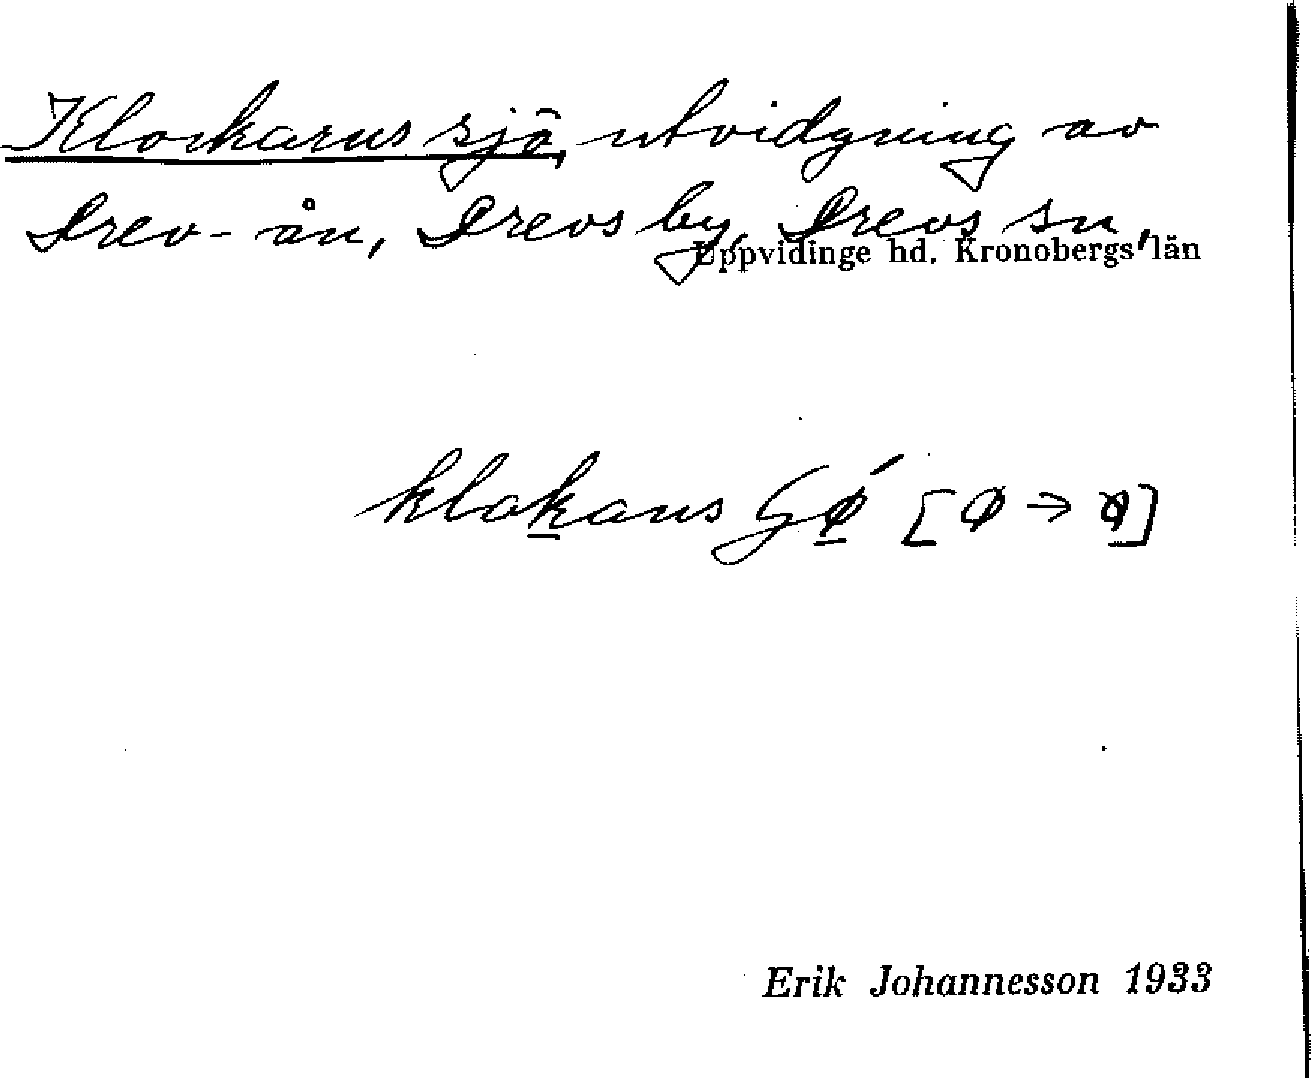 Klockarns sjö, utvidgning av
Drev-ån, Drevs by, Drevs sn,
Uppvidinge hd. Kronobergs län
klokans
Erik Johannesson 1933